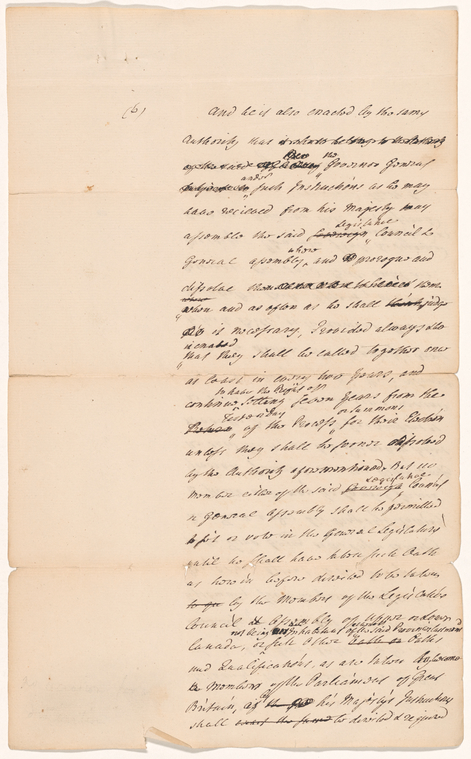 (6) And be it also enacted by the same
Authority that
the Governor General
under such Instructions as he may
have recieved from his Majesty may
assemble the said Legislative Council &
General assembly, and prorogue and
dissolve them
when and as often as he shall judge
it is necessary, Provided always
that they shall be called together once
at least in every two Years, and
continue Seven Years from the
of the Process or Summons for their Election
unless they shall be sooner dissolved
by the Authority aforementioned. But no
member either of the said Legislative Council
or General Assembly shall be permitted
to sit or vote in the General Legislature
until he shall have taken such Oath
as herein before directed to be taken
by the Members of the Legislative
Council & Assembly of Upper or Lower
Canada, or such other Oaths
and Qualifications, as are taken
Members of the Parliament of Great
Britain, as his Majesty's Instructions
shall be directed & required